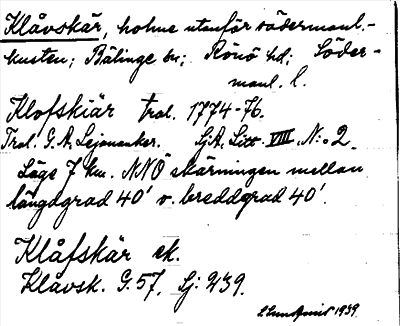 Klåvskär, holme utanför södermanl.-
kusten; Bälinge sn; Rönö hd; Söder-
manl. l.
Klofskiär tral. 1774-76.
Tral. G.A. Lejonanker. SjA. Litt. VIII, N:o 2.
Läge 7 km. NNÖ skärningen mellan
längdgrad 40' o. breddgrad 40'.
Klåfskär ek.
Klåvsk. G. 57. Sj: 239.
1939